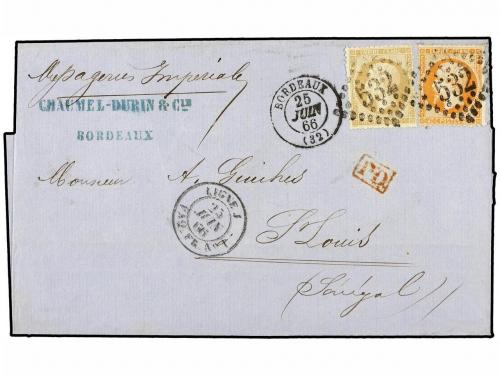 Messageries Impériale
CHAUMEL-DURIN & CIE
BORDEAUX
BORDEAUX
25
JUIN
66
(32)
532
532
P.D.
Monsieur A.
LIGNE J
25
JUIN
66
PAQ. FR.
St Louis
(Sénégal)